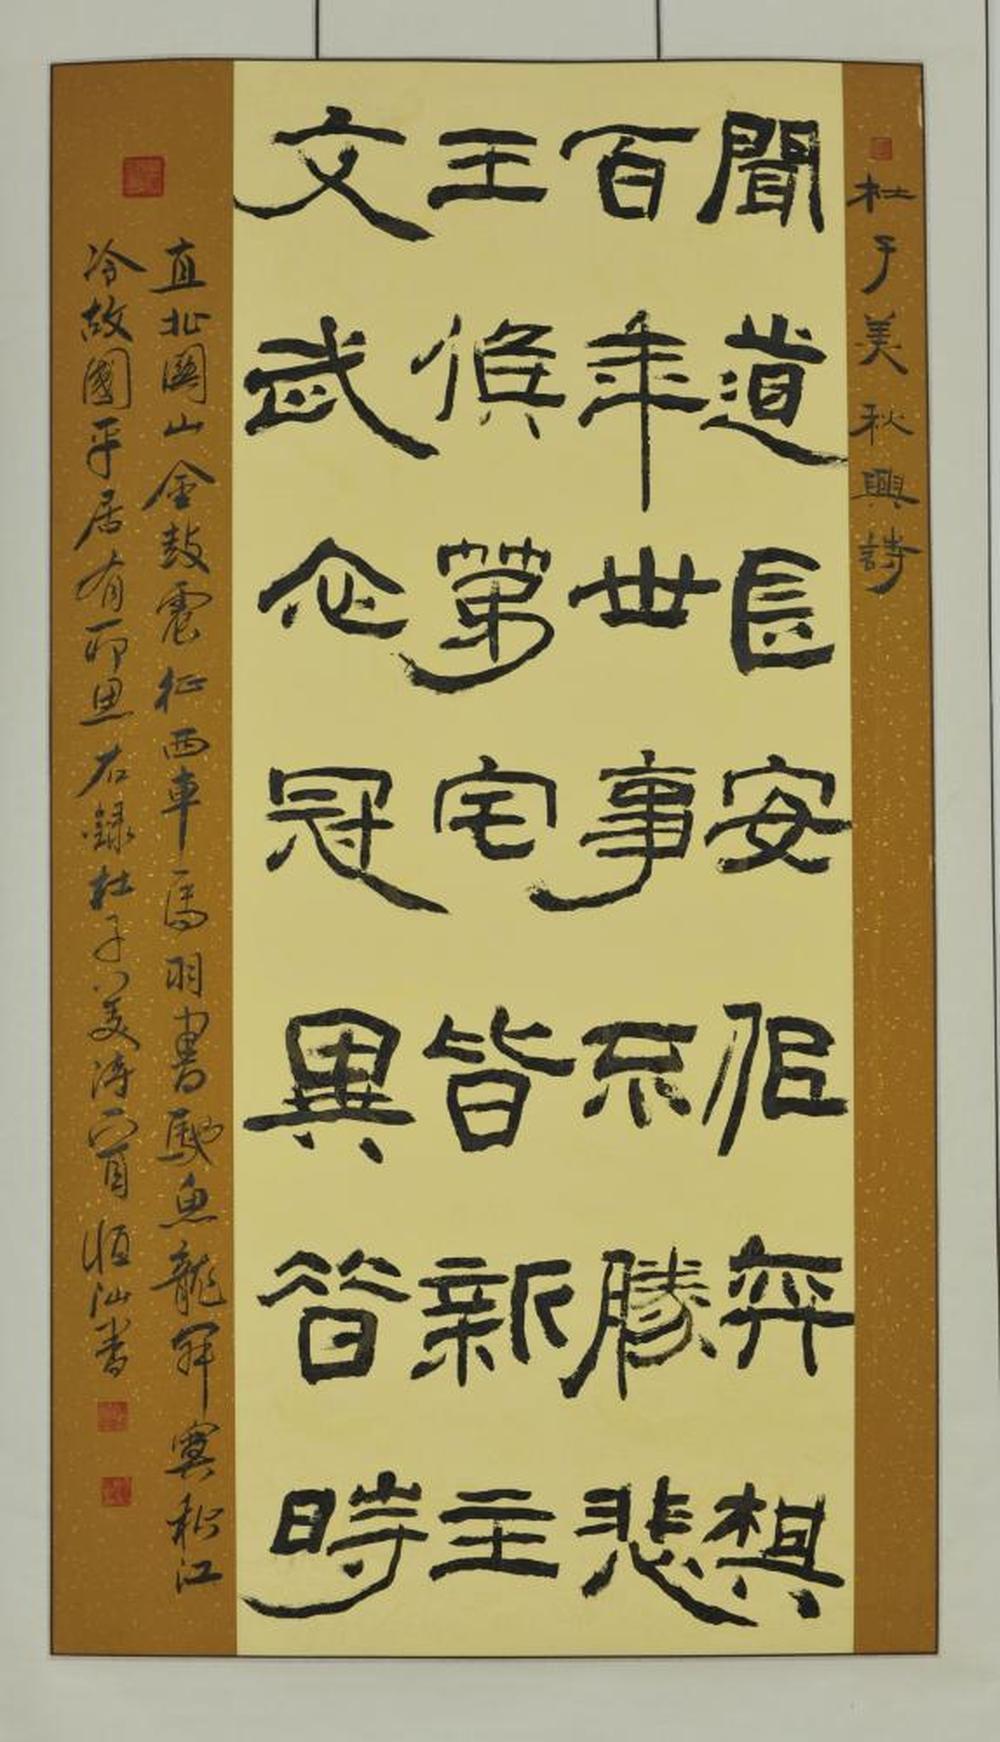 杜子美秋興詩
聞道長安佀弈棋
百年世事不勝悲
王侯第宅皆新主
文武衣冠異昔時
直北關山金鼓震征西車馬羽書馳魚龍寂寞秋江
冷故國平居有所思右錄杜子美詩一首恒汕書